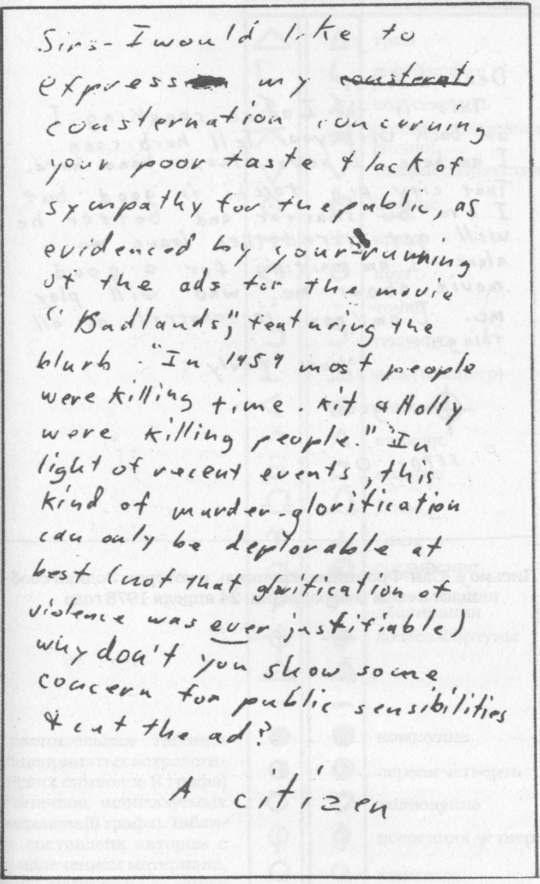 Sirs - I would like to
express my consternat
consternation concerning
your poor taste & lack of
sympathy for the public, as
evidenced by your running
of the ads for the movie
"Badlands," featuring the
blurb "In 1959 most people
were killing time. Kit & Holly
were killing people." In
light of recent events, this
kind of murder-glorification
can only be deplorable at
best (not that glorification of
violence was ever justifiable)
why don't you show some
concern for public sensibilities
& cut the ad?
A citizen